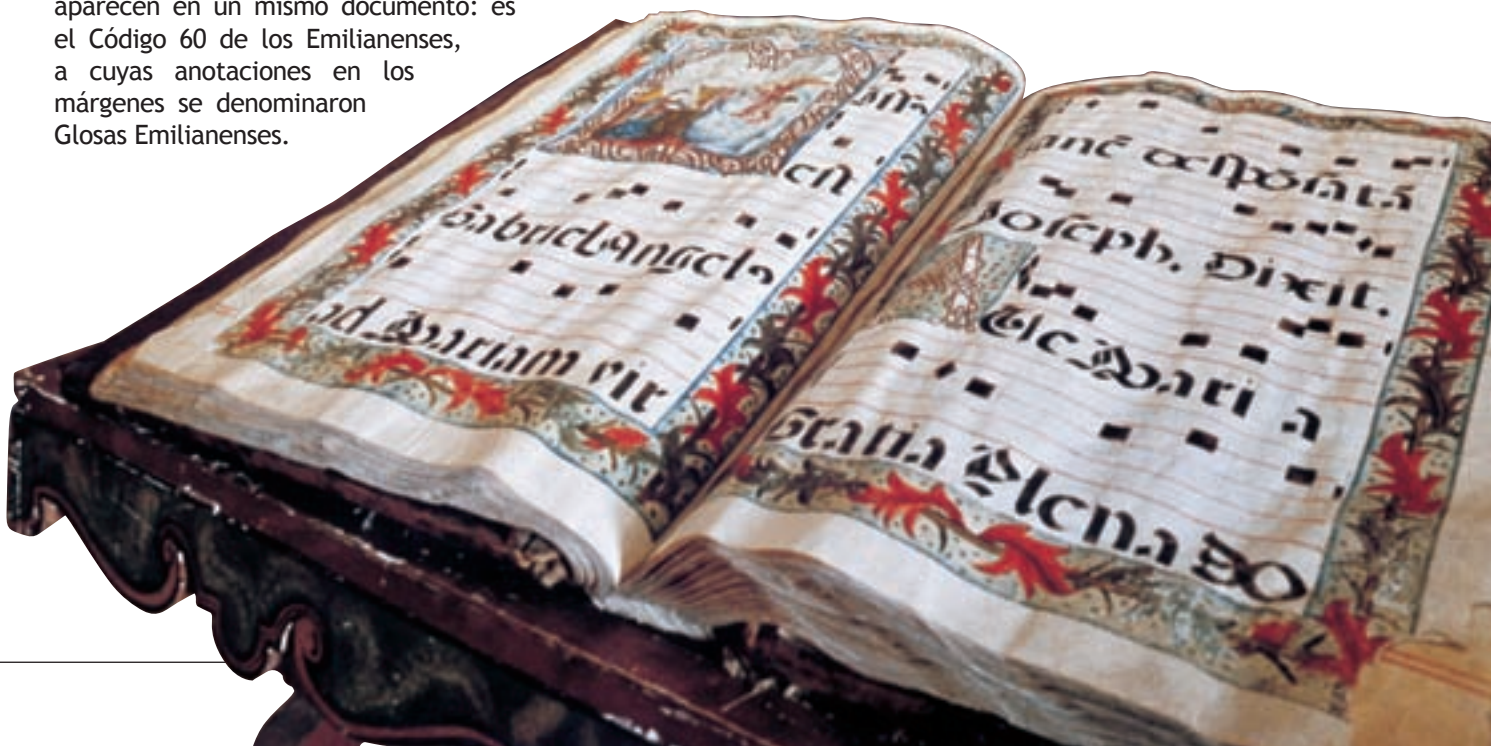 aparecen en un mismo documento: es
el Código 60 de los Emilianenses,
a cuyas anotaciones en los
márgenes se denominaron
Glosas Emilianenses.
est
Gabriel Angelꝰ
ad Mariam vir
ginē desponsatā
Joseph. Dixit.
Ave Mari a
Gratia Plena Do